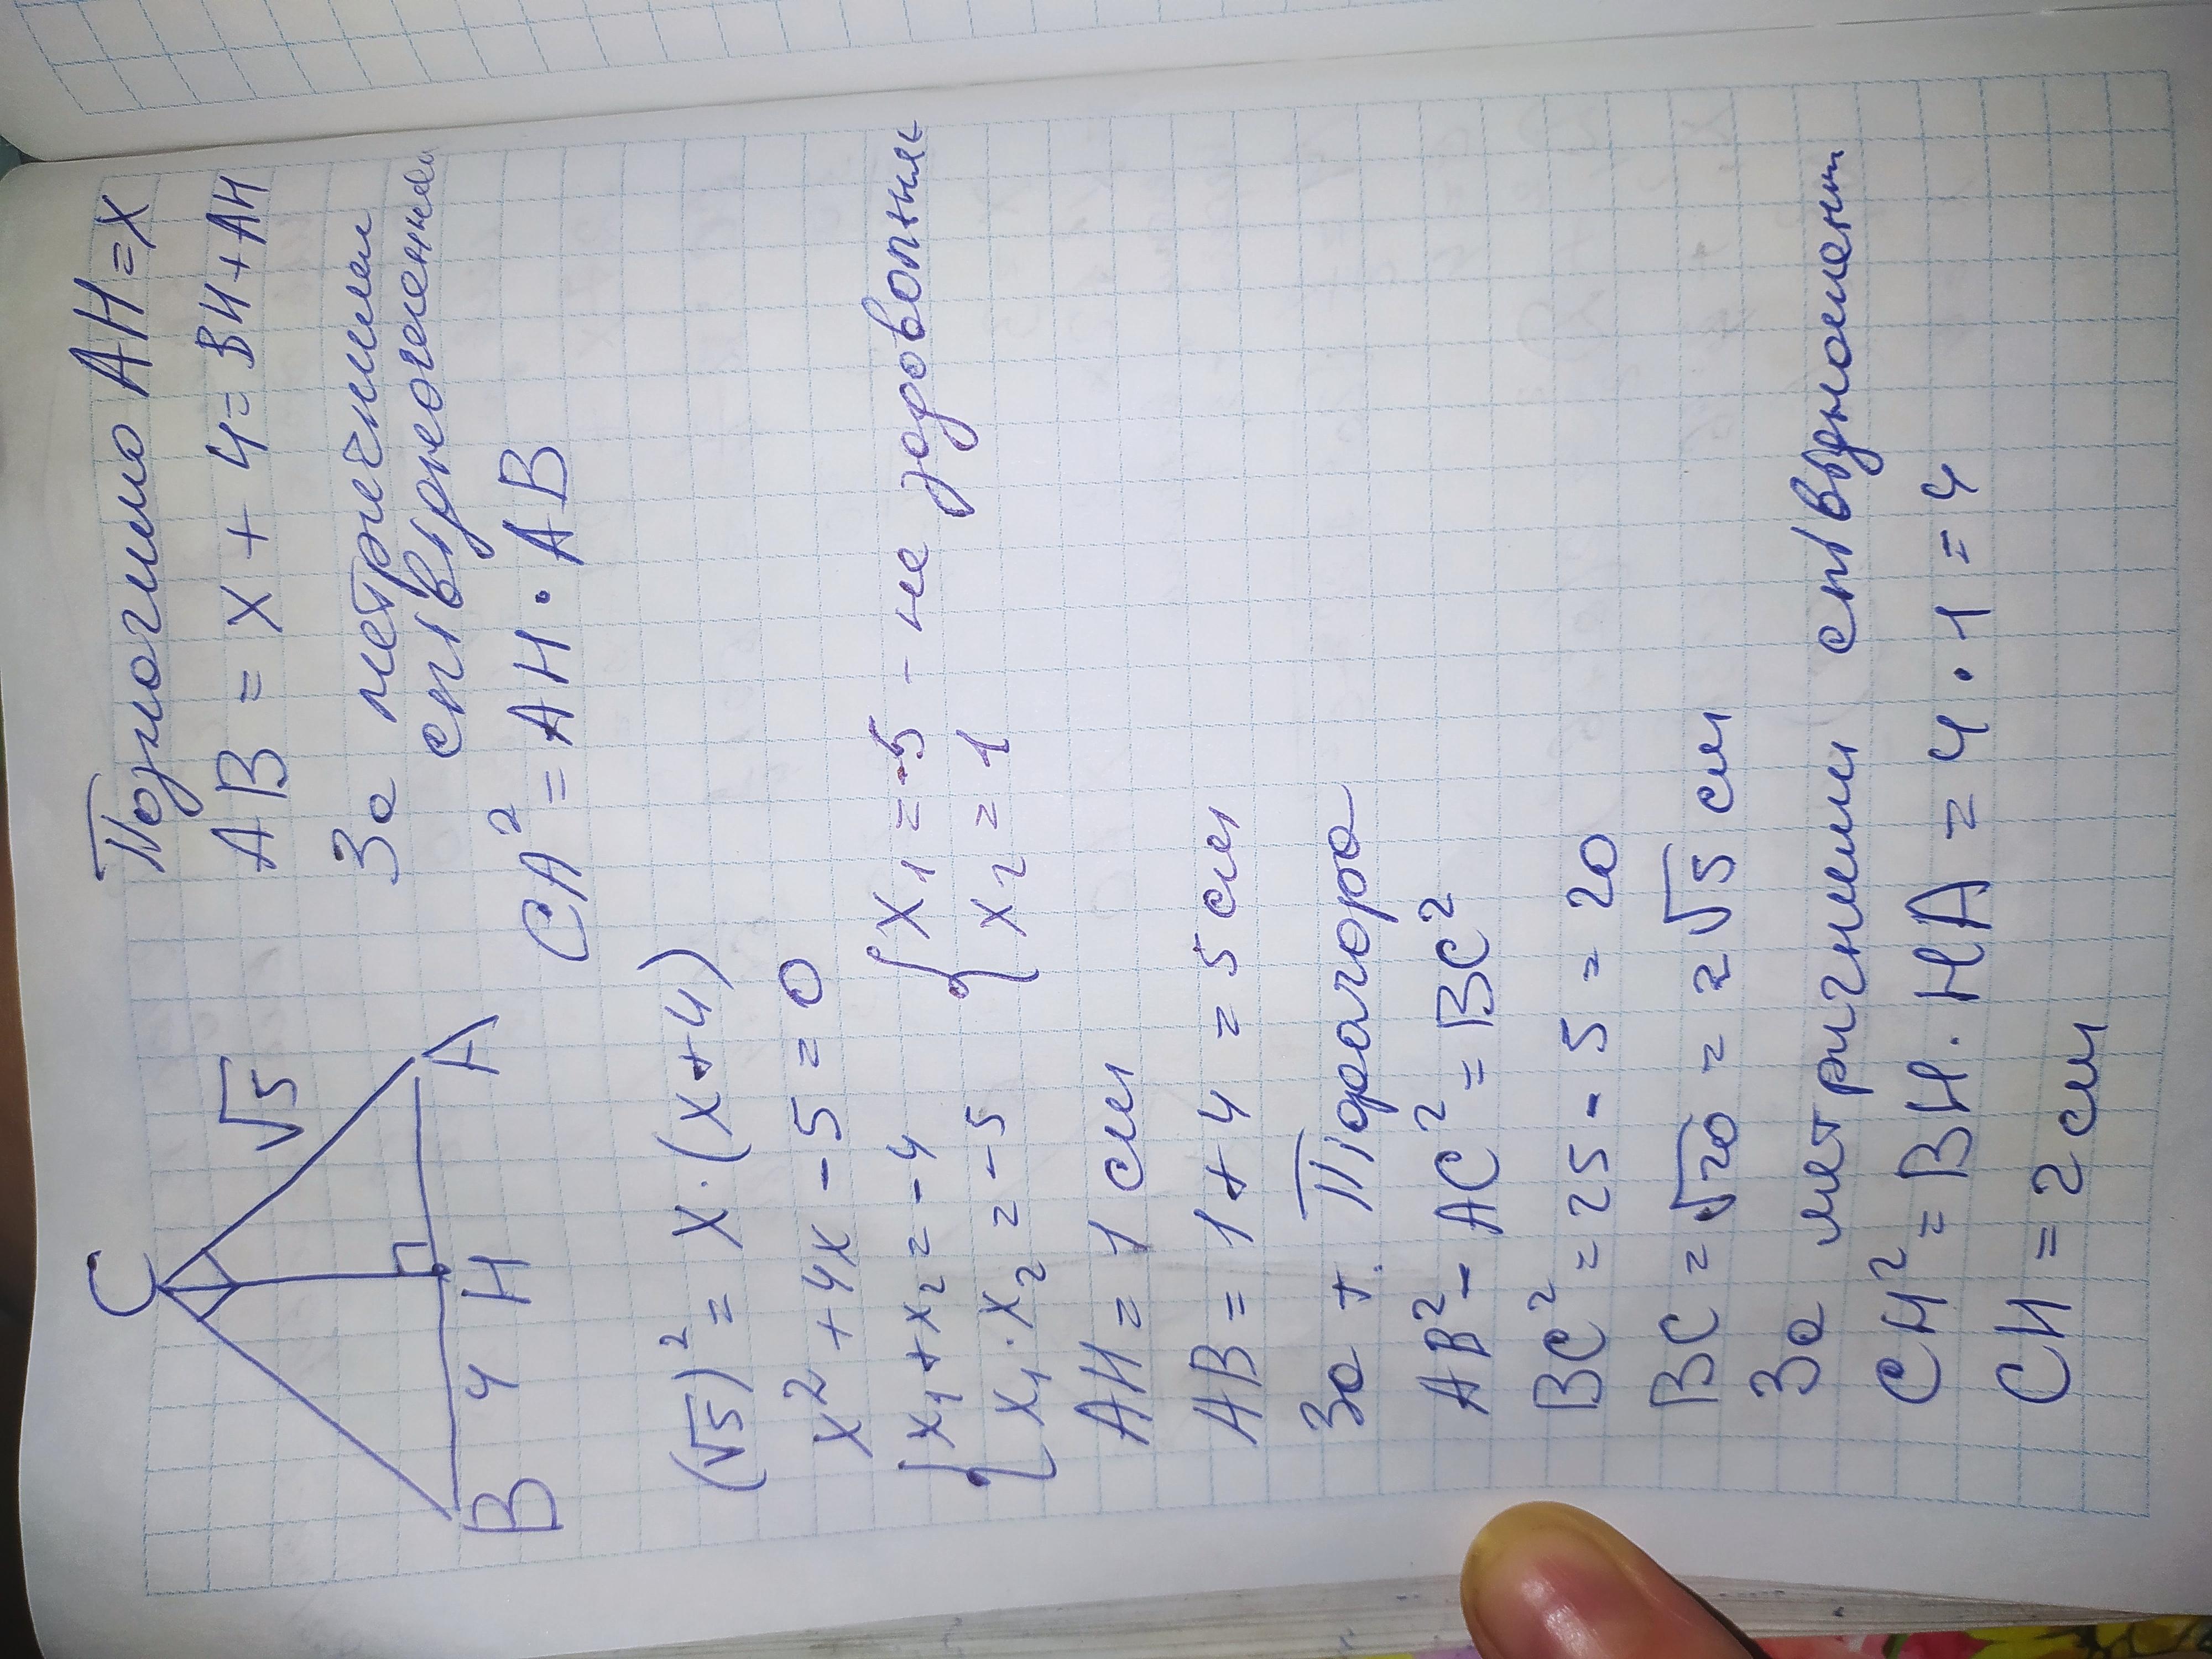 C
√5
B 4 H A
Позначимо AH = x
AB = x + 4 = BH + AH
За метричними
співвідношеннями
CA² = AH · AB
(√5)² = x · (x + 4)
x² + 4x - 5 = 0
{ x₁ + x₂ = -4
x₁ · x₂ = -5
{ x₁ = -5 - не задовольняє
x₂ = 1
AH = 1 см
AB = 1 + 4 = 5 см
За т. Піфагора
AB² - AC² = BC²
BC² = 25 - 5 = 20
BC = √20 = 2√5 см
За метричними співвідношен
CH² = BH · HA = 4 · 1 = 4
CH = 2 см